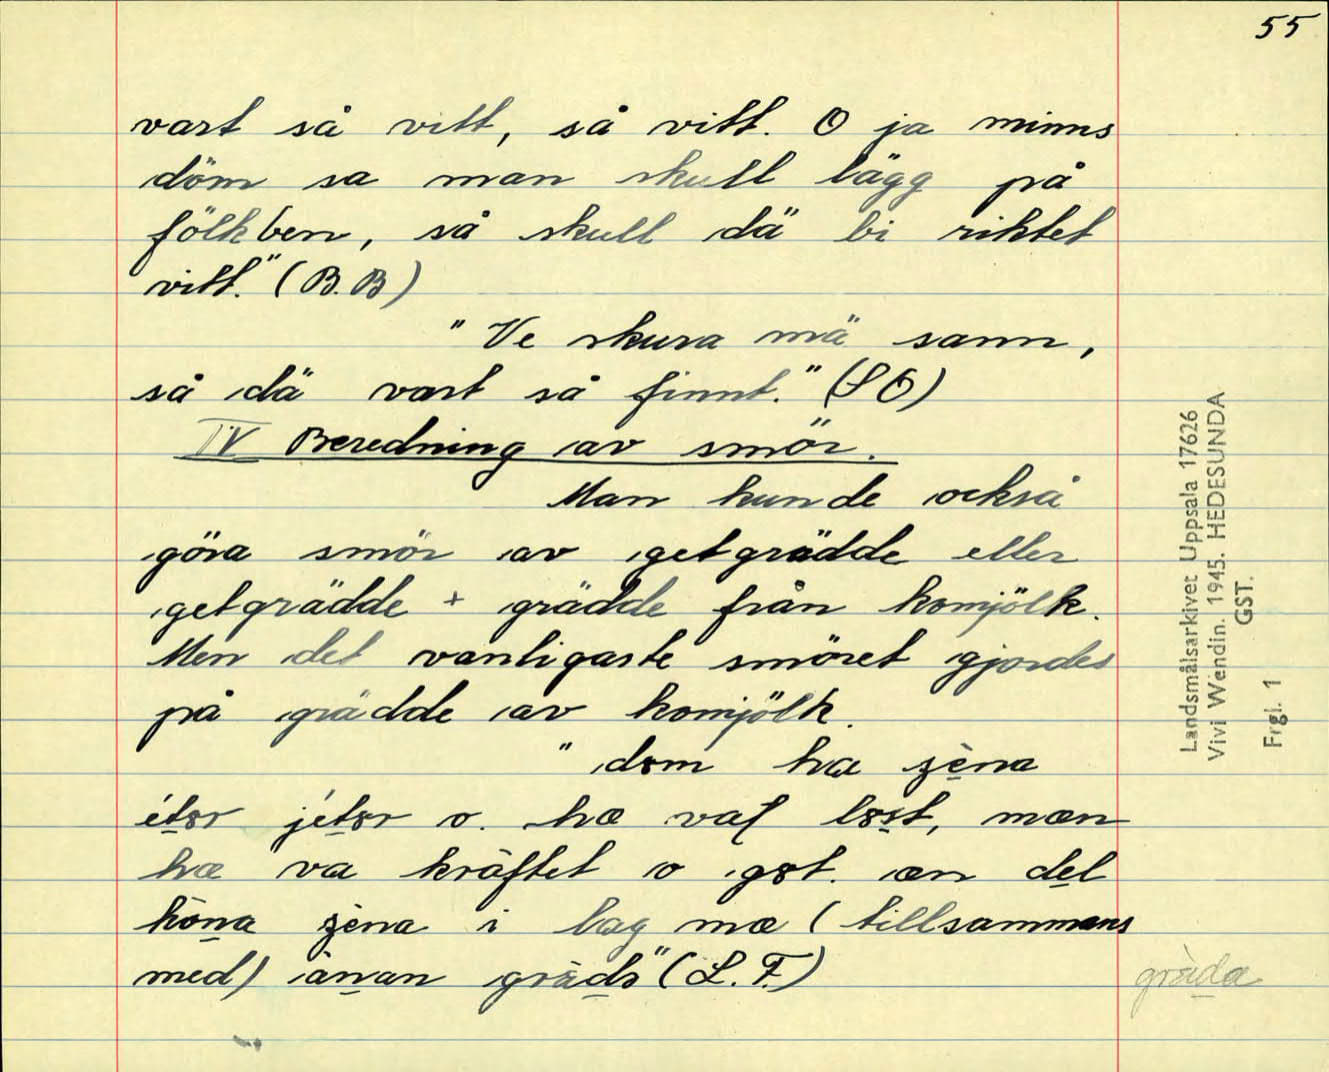 55
vart så vitt, så vitt. O ja minns
döm sa man skull lägg på
fölkben, så skull dä bi riktet
vitt." (B.B)
" Ve skura mä sann,
så dä vart så finnt." (SO)
IV Beredning av smör.
Man kunde också
göra smör av getgrädde eller
getgrädde + grädde från komjölk.
Men det vanligaste smöret gjordes
på grädde av komjölk.
" dom ha
o. hæ va mæn
hæ va kräftet o æn del
i lag mæ (tillsammans
med) ànan (L.F.)
gràda
Landsmålsarkivet Uppsala 17626
Vivi Wendin. 1945. HEDESUNDA
GST.
Frgl. 1